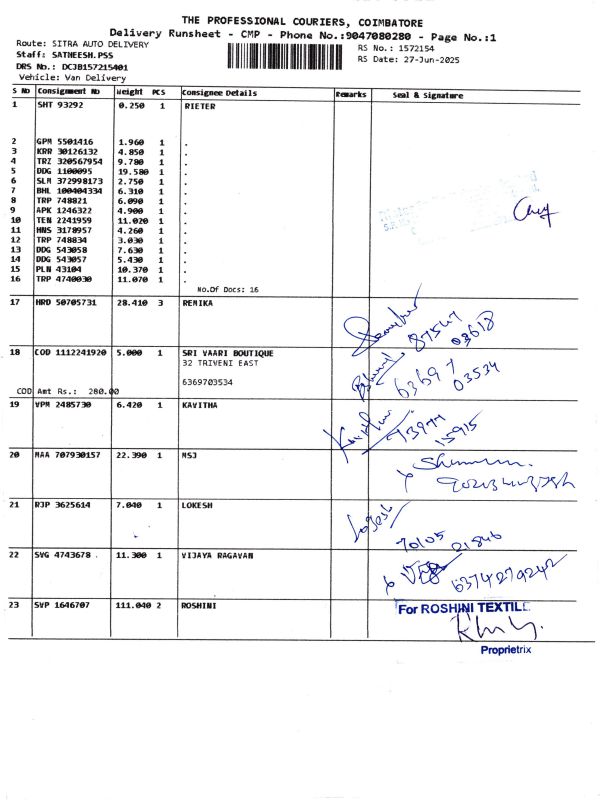 THE PROFESSIONAL COURIERS, COIMBATORE
Delivery Runsheet - CMP - Phone No.:9047080280 - Page No.:1
Route: SITRA AUTO DELIVERY
Staff: SATHEESH.PSS
DRS No.: DCJB157215401
Vehicle: Van Delivery
RS No.: 1572154
RS Date: 27-Jun-2025
S No Consignment No Weight PCS Consignee Details Remarks Seal & Signature
1 SHT 93292 0.250 1 RIETER
2 GPM 5501416 1.960 1 .
3 KRR 30126132 4.850 1 .
4 TRZ 320567954 9.780 1 .
5 DDG 1100095 19.580 1 .
6 SLM 372998173 2.750 1 .
7 BHL 100404334 6.310 1 .
8 TRP 748821 6.090 1 .
9 APK 1246322 4.900 1 .
10 TEN 2241959 11.020 1 .
11 HNS 3178957 4.260 1 .
12 TRP 748834 3.030 1 .
13 DDG 543058 7.630 1 .
14 DDG 543057 5.430 1 .
15 PLN 43104 10.370 1 .
16 TRP 4740030 11.070 1 .
No.Of Docs: 16
17 HRD 50705731 28.410 3 REMIKA
87547
03618
18 COD 1112241920 5.000 1 SRI VAARI BOUTIQUE
32 TRIVENI EAST
6369703534
COD Amt Rs.: 280.00
63697
03534
19 VPM 2485730 6.420 1 KAVITHA
73977
15915
20 MAA 707930157 22.390 1 MSJ
21 RJP 3625614 7.040 1 LOKESH
Logesh
70105
21846
22 SVG 4743678 11.300 1 VIJAYA RAGAVAN
6374279242
23 SVP 1646707 111.040 2 ROSHINI
For ROSHINI TEXTILE
Proprietrix